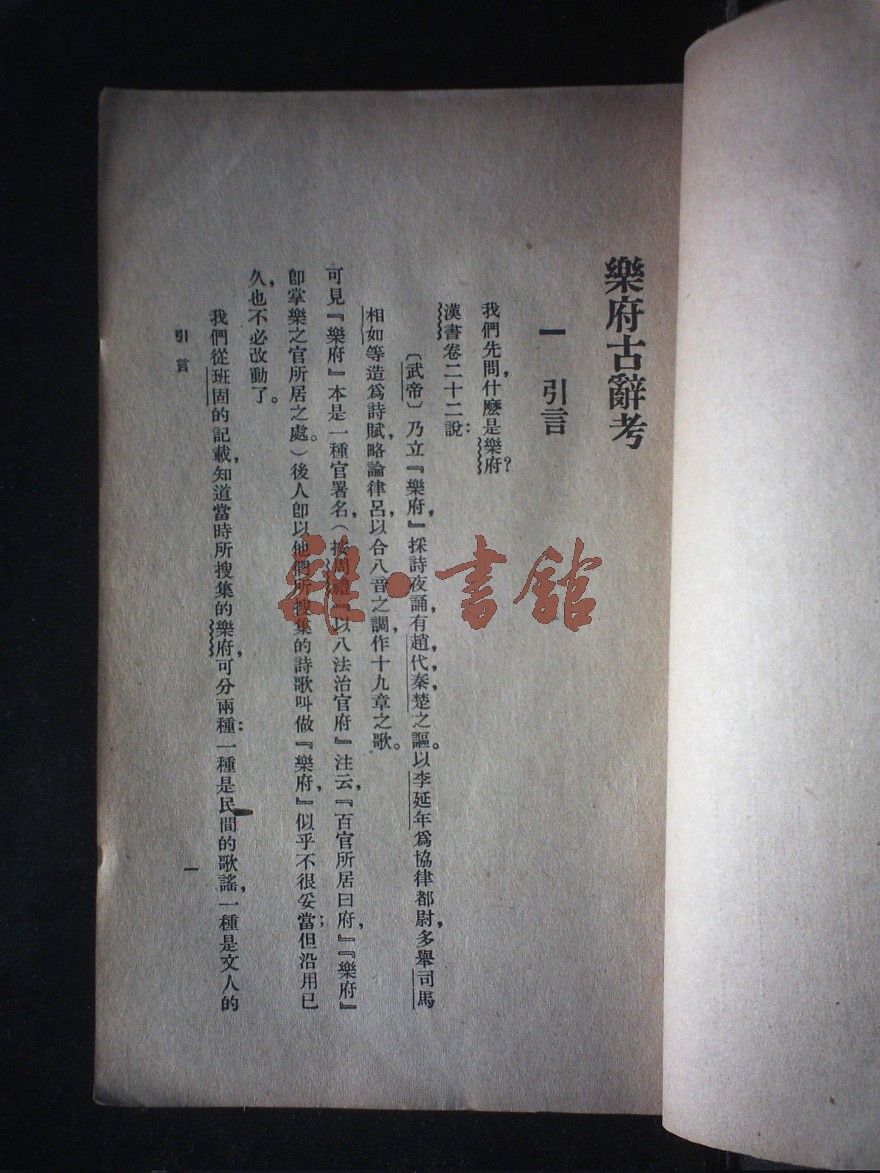 樂府古辭考
一 引言
我們先問，什麼是樂府？
漢書卷二十二說：
〔武帝〕乃立『樂府，』採詩夜誦，有趙，代，秦，楚之謳。以李延年爲協律都尉，多舉司馬
相如等造爲詩賦，略論律呂，以合八音之調，作十九章之歌。
可見『樂府』本是一種官署名，（按周禮『以八法治官府』注云，『百官所居曰府，』『樂府』
卽掌樂之官所居之處。）後人卽以他們所搜集的詩歌叫做『樂府，』似乎不很妥當；但沿用已
久，也不必改動了。
我們從班固的記載，知道當時所搜集的樂府，可分兩種：一種是民間的歌謠，一種是文人的
引言
一
雜·書館